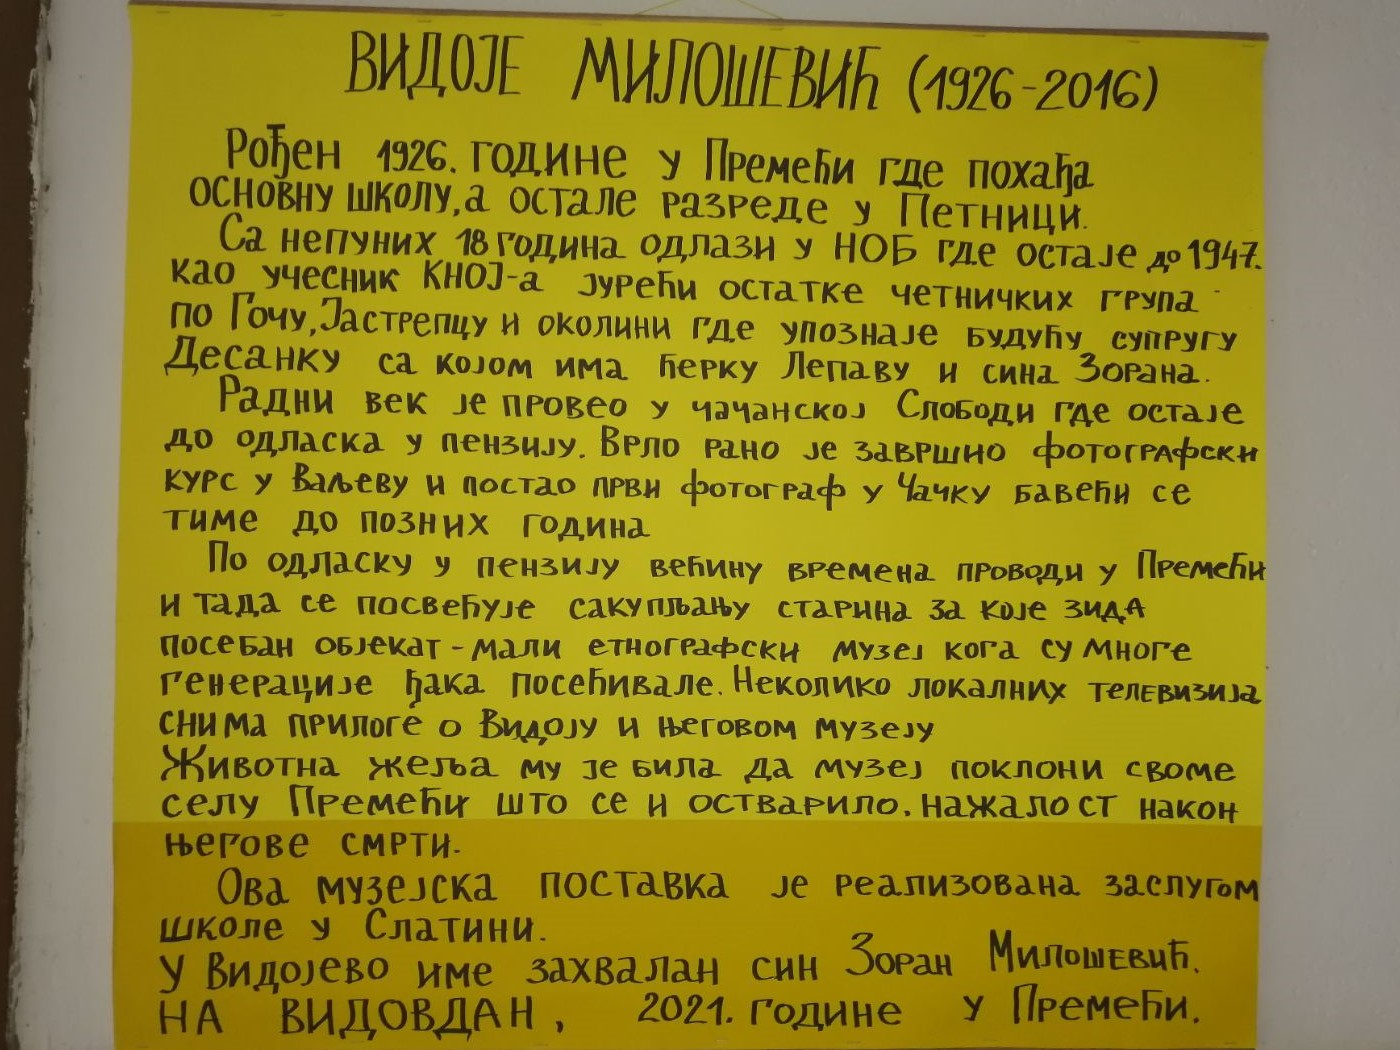 ВИДОЈЕ МИЛОШЕВИЋ (1926-2016)
Рођен 1926. године у Премећи где похађа
основну школу, а остале разреде у Петници.
Са непуних 18 година одлази у НОБ где остаје до 1947.
као учесник КНОЈ-а јурећи остатке четничких група
по Гочу, Јастрепцу и околини где упознаје будућу супругу
Десанку са којом има ћерку Лепаву и сина Зорана.
Радни век је провео у чачанској Слободи где остаје
до одласка у пензију. Врло рано је завршио фотографски
курс у Ваљеву и постао први фотограф у Чачку бавећи се
тиме до позних година
По одласку у пензију већину времена проводи у Премећи
и тада се посвећује сакупљању старина за које зида
посебан објекат - мали етнографски музеј кога су многе
генерације ђака посећивале. Неколико локалних телевизија
снима прилоге о Видоју и његовом музеју
Животна жеља му је била да музеј поклони своме
селу Премећи што се и остварило. нажалост након
његове смрти.
Ова музејска поставка је реализована заслугом
школе у Слатини.
У Видојево име захвалан син Зоран Милошевић.
НА ВИДОВДАН, 2021. године у Премећи.